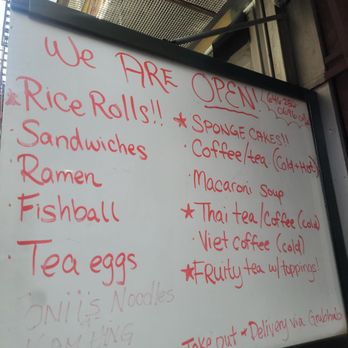 We ARE OPEN!
★ Rice Rolls!!
· Sandwiches
· Ramen
· Fishball
· Tea eggs
Noodles
★ SPONGE CAKES!!
· Coffee/tea (Cold + Hot)
· Macaroni Soup
★ Thai tea/Coffee (cold)
· Viet coffee (cold)
★ Fruity tea w/toppings!
Take out ★ Delivery via Grubhub